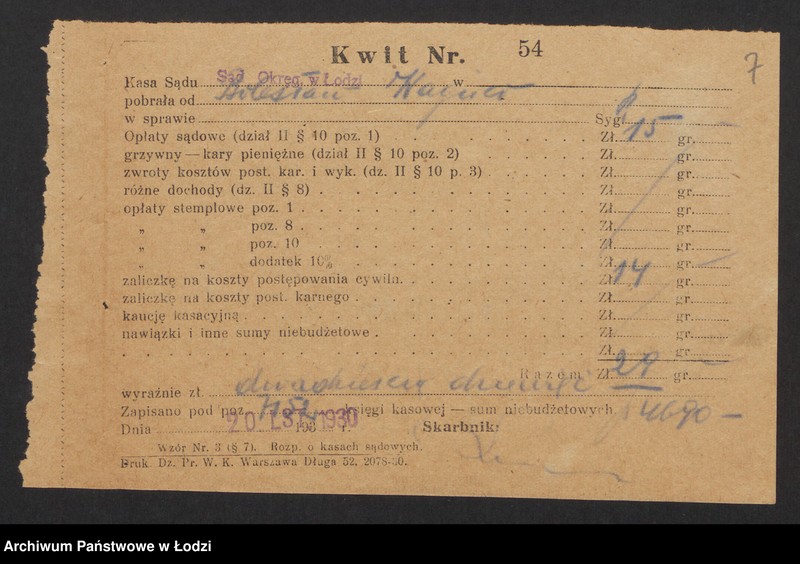 Kwit Nr. 54
7
Kasa Sądu Sąd Okręg. w Łodzi w
pobrała od
w sprawie Sygn.
Opłaty sądowe (dział II § 10 poz. 1) . . . Zł. 15 gr.
grzywny — kary pieniężne (dział II § 10 poz. 2) Zł. gr.
zwroty kosztów post. kar. i wyk. (dz. II § 10 p. 3) Zł. gr.
różne dochody (dz. II § 8) Zł. gr.
opłaty stemplowe poz. 1 Zł. gr.
„ „ poz. 8 Zł. gr.
„ „ poz. 10 Zł. gr.
„ „ dodatek 10% Zł. gr.
zaliczkę na koszty postępowania cywiln. Zł. 14 gr. —
zaliczkę na koszty post. karnego Zł. gr.
kaucję kasacyjną Zł. gr.
nawiązki i inne sumy niebudżetowe Zł. gr.
Zł. gr.
Razem Zł. 29 gr. —
wyraźnie zł. dwadzieścia dziewięć
Zapisano pod poz. księgi kasowej — sum niebudżetowych 4690 —
Dnia 20 LST. 1930 193 r. Skarbnik:
Wzór Nr. 3 (§ 7). Rozp. o kasach sądowych.
Druk. Dz. Pr. W. K. Warszawa Długa 52. 2078-30.
Archiwum Państwowe w Łodzi